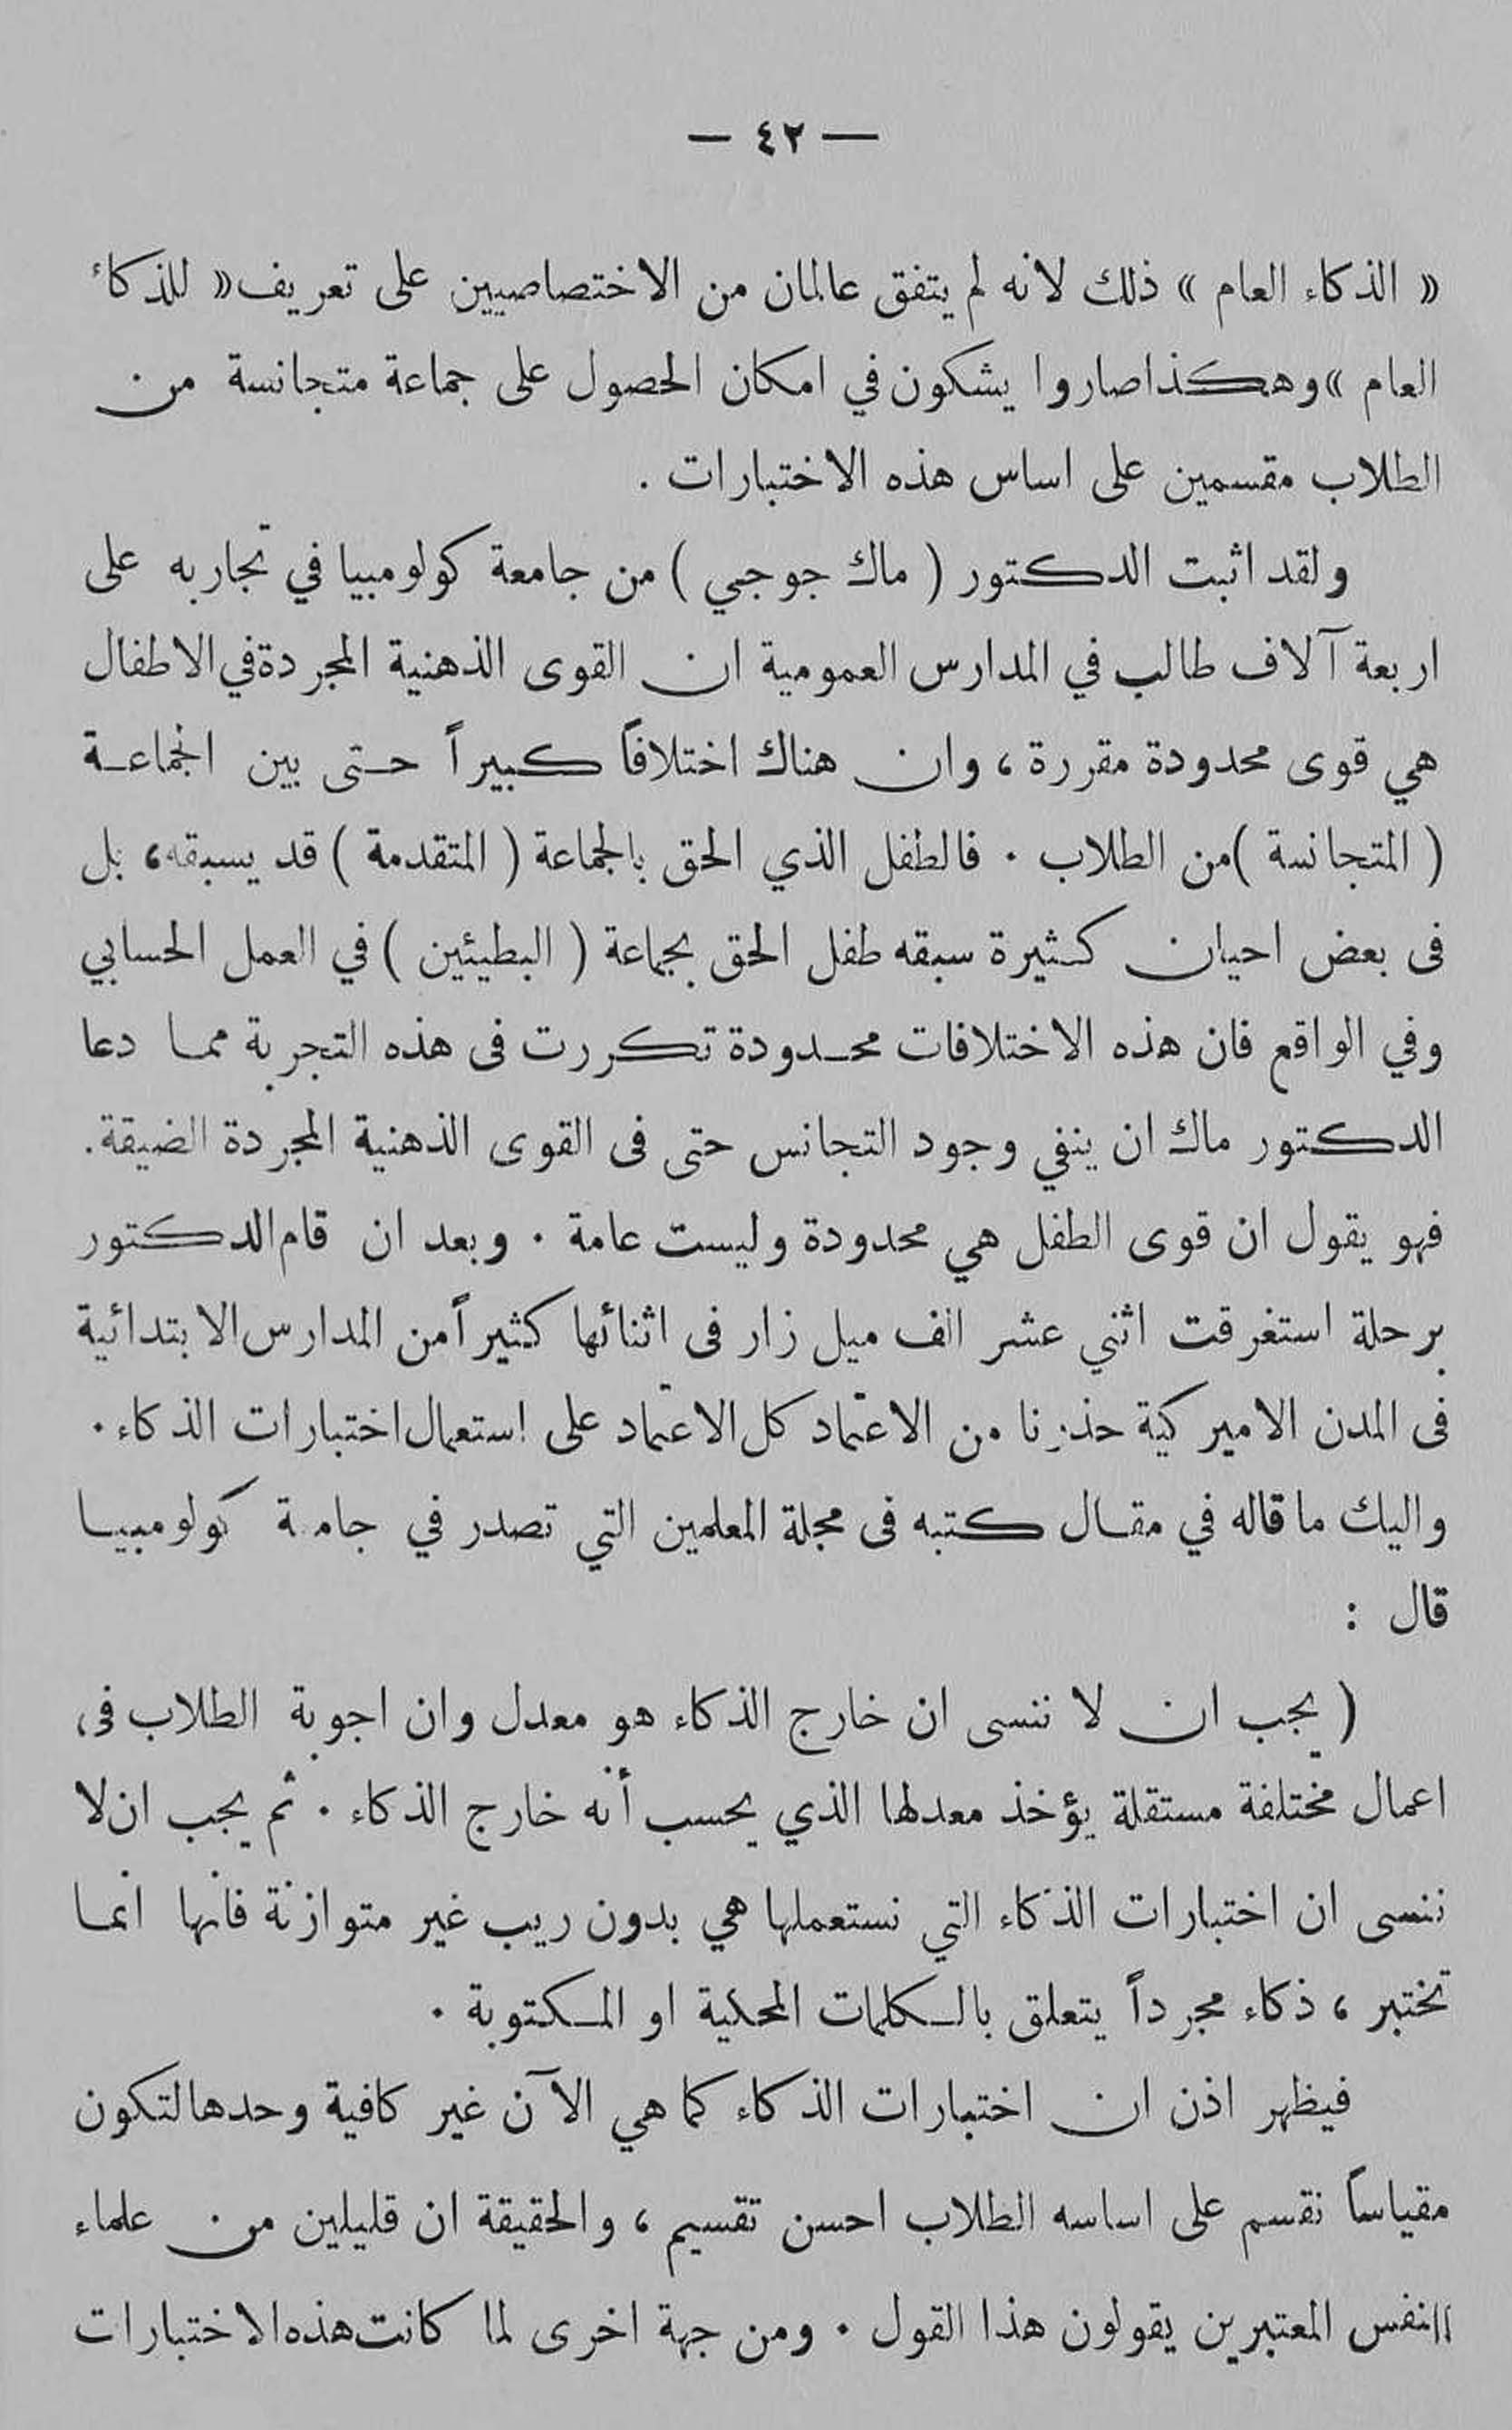 — ٤٢ —
« الذكاء العام » ذلك لانه لم يتفق عالمان من الاختصاصيين على تعريف « للذكاء
العام » وهكذا صاروا يشكون في امكان الحصول على جماعة متجانسة من
الطلاب مقسمين على اساس هذه الاختبارات .
ولقد اثبت الدكتور ( ماك جوجي ) من جامعة كولومبيا في تجاربه على
اربعة آلاف طالب في المدارس العمومية ان القوى الذهنية المجردة في الاطفال
هي قوى محدودة مقررة ، وان هناك اختلافاً كبيراً حتى بين الجماعة
( المتجانسة ) من الطلاب . فالطفل الذي الحق بالجماعة ( المتقدمة ) قد يسبقه ، بل
فى بعض احيان كثيرة سبقه طفل الحق بجماعة ( البطيئين ) في العمل الحسابي
وفي الواقع فان هذه الاختلافات محدودة تكررت فى هذه التجربة مما دعا
الدكتور ماك ان ينفي وجود التجانس حتى فى القوى الذهنية المجردة الضيقة .
فهو يقول ان قوى الطفل هي محدودة وليست عامة . وبعد ان قام الدكتور
برحلة استغرقت اثني عشر الف ميل زار فى اثنائها كثيراً من المدارس الابتدائية
فى المدن الاميركية حذرنا من الاعتماد كل الاعتماد على استعمال اختبارات الذكاء .
واليك ما قاله في مقال كتبه فى مجلة المعلمين التي تصدر في جامعة كولومبيا
قال :
( يجب ان لا ننسى ان خارج الذكاء هو معدل وان اجوبة الطلاب فى
اعمال مختلفة مستقلة يؤخذ معدلها الذي يحسب أنه خارج الذكاء . ثم يجب ان لا
ننسى ان اختبارات الذكاء التي نستعملها هي بدون ريب غير متوازنة فانها انما
تختبر ، ذكاء مجرداً يتعلق بالكلمات المحكية او المكتوبة .
فيظهر اذن ان اختبارات الذكاء كما هي الآن غير كافية وحدها لتكون
مقياساً نقسم على اساسه الطلاب احسن تقسيم ، والحقيقة ان قليلين من علماء
النفس المعتبرين يقولون هذا القول . ومن جهة اخرى لما كانت هذه الاختبارات